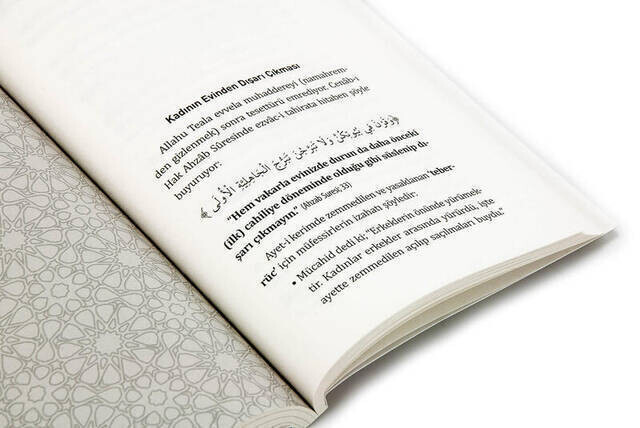 Kadının Evinden Dışarı Çıkması
Allahu Teala evvela muhaddereyi (namahrem-
den gizlenmek) sonra tesettürü emrediyor. Cenâb-i
Hak Ahzâb Sûresinde ezvâc-i tahirata hitaben şöyle
buyuruyor:
﴿وَقَرْنَ فِي بُيُوتِكُنَّ وَلَا تَبَرَّجْنَ تَبَرُّجَ الْجَاهِلِيَّةِ الْأُولَى﴾
"Hem vakarla evinizde durun da daha önceki
(ilk) cahiliye döneminde olduğu gibi süslenip dı-
şarı çıkmayın." (Ahzab Suresi; 33)
Ayet-i kerimede zemmedilen ve yasaklanan 'teber-
rüc' için müfessirlerin izahan şöyledir:
• Mücahid dedi ki; "Erkeklerin önünde yürümek-
tir. Kadınlar erkekler arasında yürürdü, işte
ayette zemmedilen açılıp saçılmaları buydu."